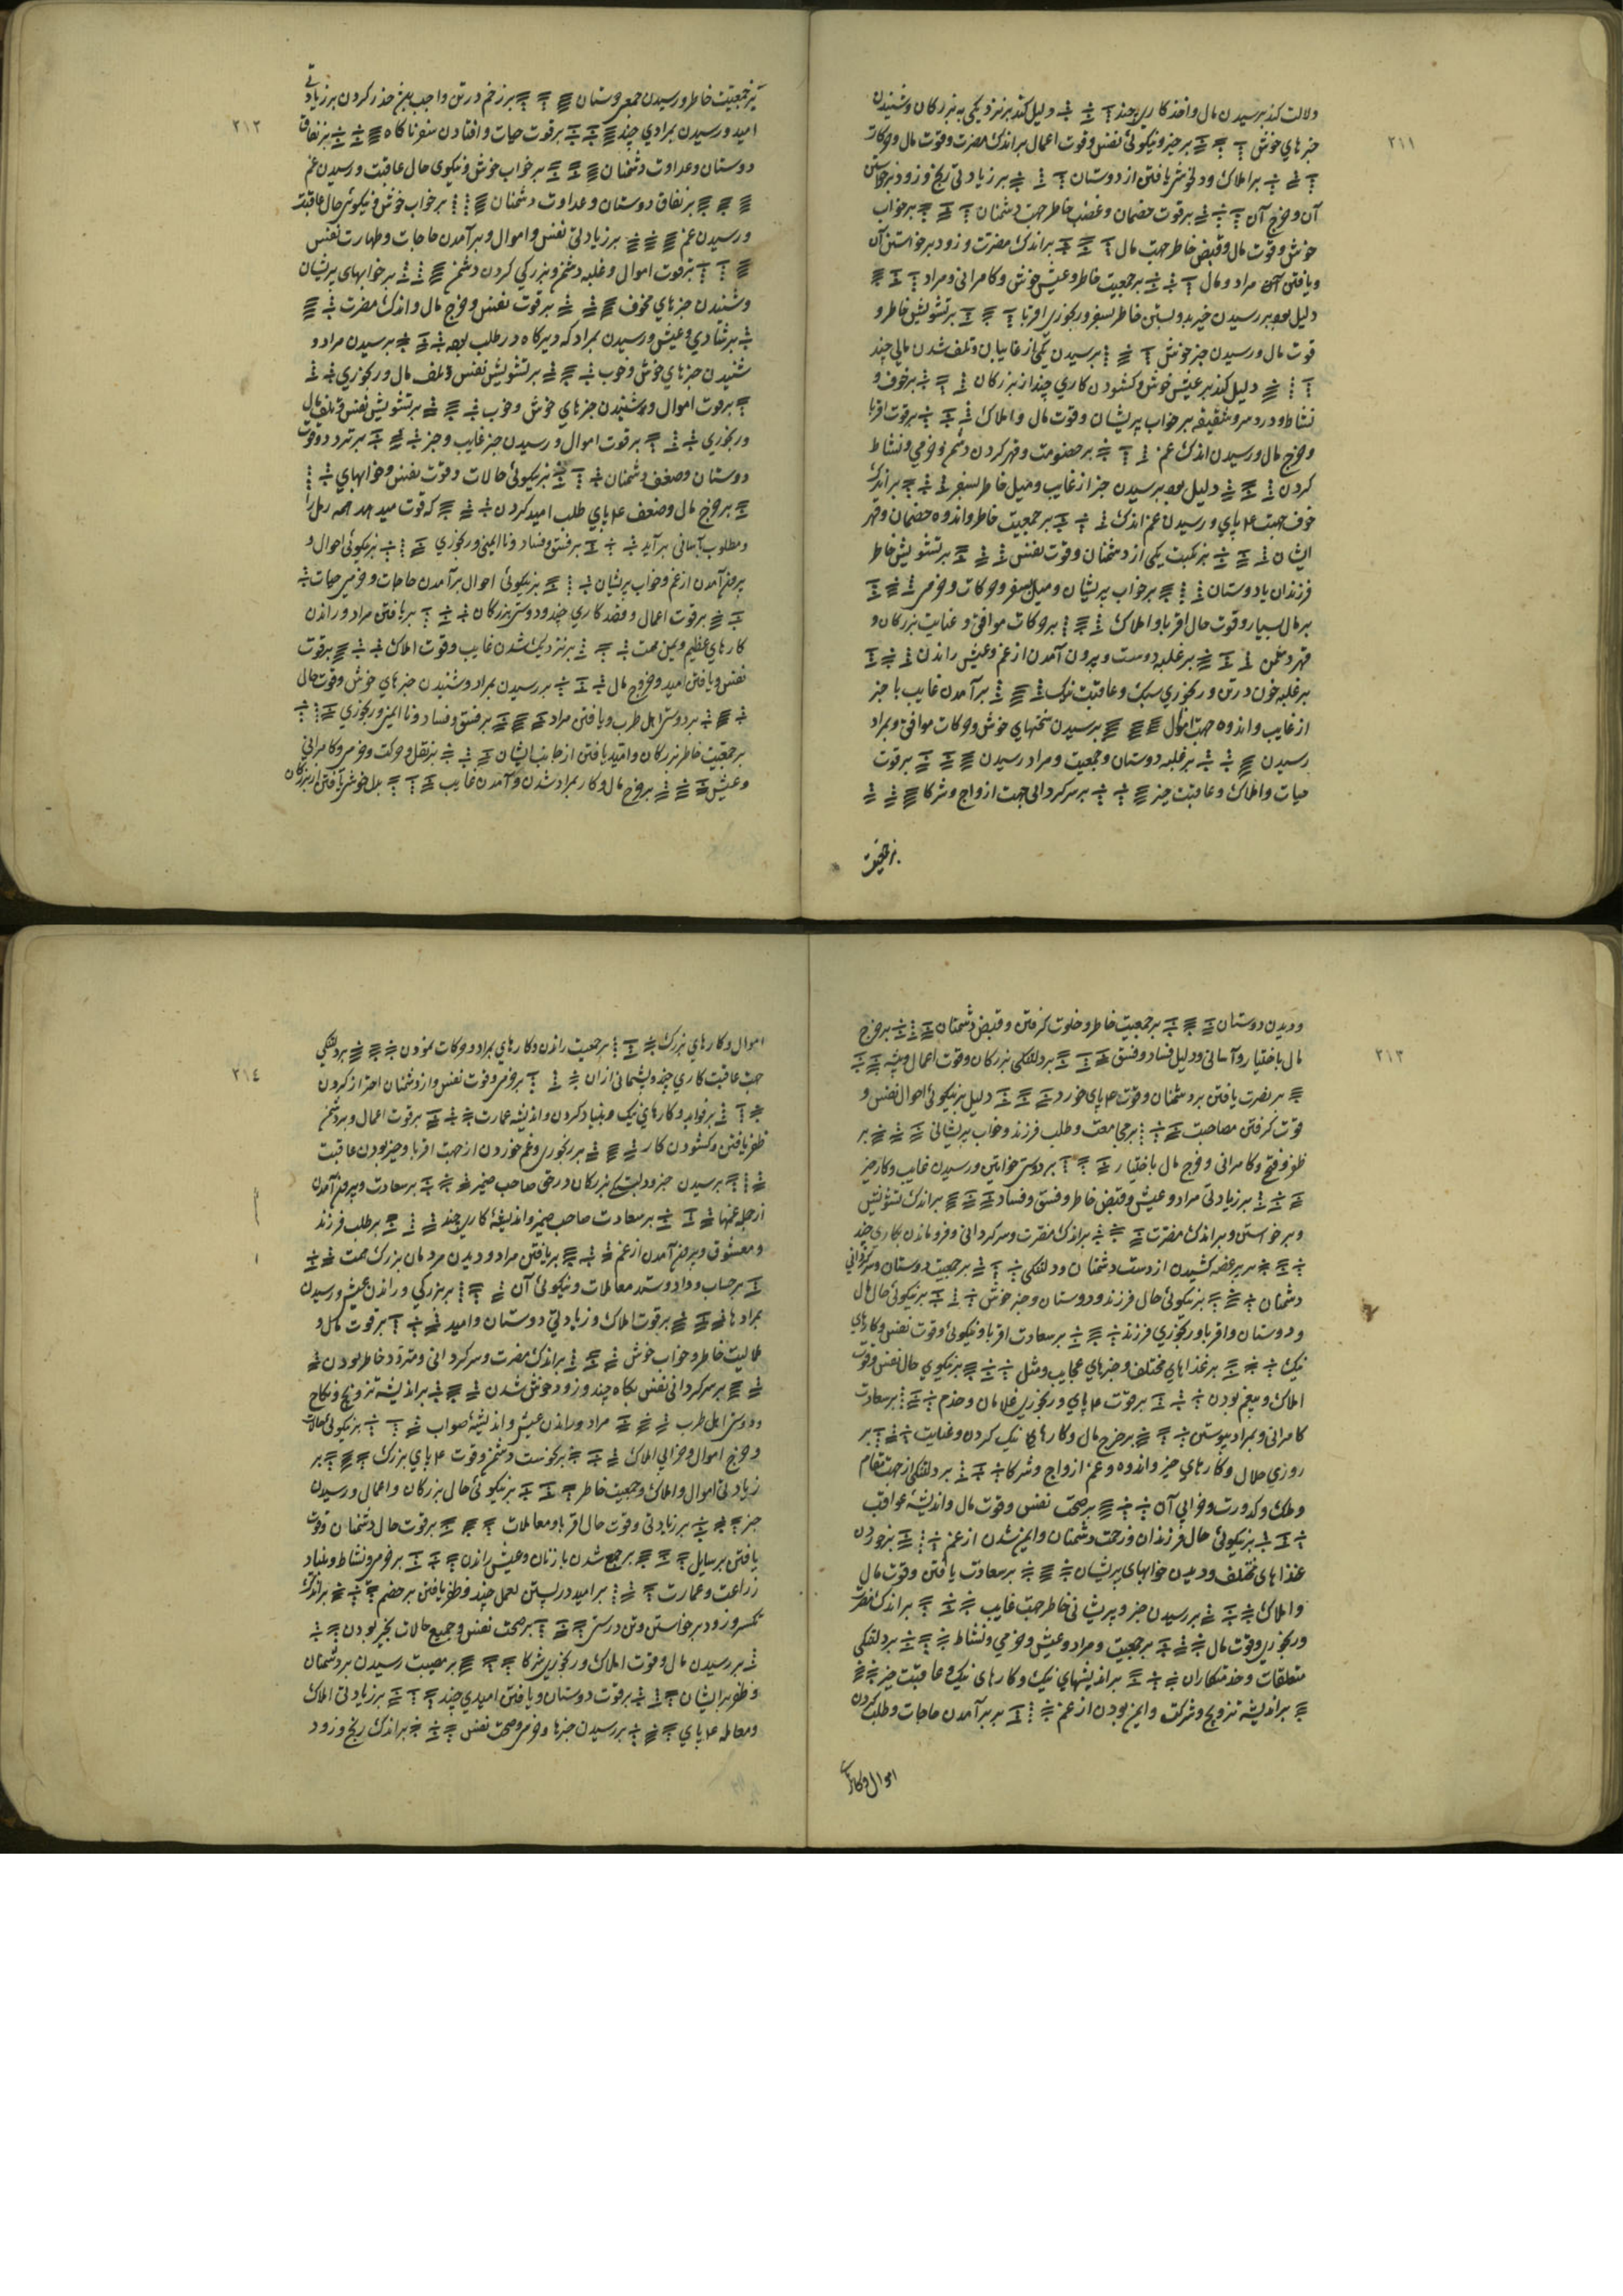 ٢١١
دلالت کند برسیدن مال و اخذ کاری چند دلیل کند بر نزدیکی به بزرکان و شنیدن
خبرهای خوش بر خیر و نیکوئی نفس و قوت اعمال بر اندک مضرت و قوت مال و حرکات
بر املاک و دلخوشی یافتن از دوستان بر زیادتی رنج و زود برخاستن
آن و خرج آن بر قوت خصمان و غضب خاطر جهت دشمنان بر خواب
خوش و قوت مال و قبض خاطر جهت مال بر اندک مضرت و زود برخواستن آن
و یافتن مراد و مال بر جمعیت خاطر و عیش خوش و کامرانی و مراد
دلیل بود بر رسیدن خیر و بستن خاطر بسفر و رنجوری اقربا بر تشویش خاطر و
قوت مال و رسیدن خبر خوش برسیدن یکی از غایبان و تلف شدن مالی چند
دلیل کند بر عیش خوش و کشودن کاری چند از بزرکان بر خوف و
نشاط و درد سر و شقیقه بر خواب پریشان و قوت مال و املاک بر قوت اقربا
و خرج مال و رسیدن اندک غم بر خصومت و قهر کردن دشمن و خرمی و نشاط
کردن دلیل بود برسیدن خبر از غایب و میل خاطر بسفر بر اندک
خوف جهت ۴ پای و رسیدن غم اندک بر جمعیت خاطر و اندوه خصمان و قهر
ایشان بر نکبت یکی از دشمنان و قوت نفس بر تشویش خاطر
فرزندان یا دوستان بر خواب پریشان و میل سفر و حرکات و خرمی
بر مال بسیار و قوت حال اقربا و املاک بر حرکات موافق و عنایت بزرکان و
قهر دشمن بر غلبه دوست و بیرون آمدن از غم و عیش راندن
بر غلبه خون در تن و رنجوری سبک و عاقبت نیک بر آمدن غایب یا خبر
از غایب و اندوه جهت اموال برسیدن سخنهای خوش و حرکات موافق و بمراد
رسیدن بر غلبه دوستان و جمعیت و مراد رسیدن بر قوت
حیات و املاک و عاقبت خیر بر سرکردانی جهت ازواج و شرکا
بر جمعیت
٢١٢
بر جمعیت خاطر و رسیدن جمعی دوستان بر زخم در تن واجب بین حذر کردن بر زیادتی
امید و رسیدن بمرادی چند بر قوت حیات و افتادن سفر ناکاه بر نفاق
دوستان و عداوت دشمنان بر خواب خوش و نیکوی حال عاقبت و رسیدن غم
بر نفاق دوستان و عداوت دشمنان بر خواب خوش و نیکوئی حال عاقبت
و رسیدن غم بر زیادتی نفس و اموال و بر آمدن حاجات و طهارت نفس
بر قوت اموال و غلبه دشمن و بزرکی کردن دشمن بر خوابهای پریشان
و شنیدن خبرهای مخوف بر قوت نفس و خرج مال و اندک مضرت
بر شادی و عیش و رسیدن بمراد که دیرکاه در طلب بود برسیدن مراد و
شنیدن خبرهای خوش و خوب بر تشویش نفس و تلف مال و رنجوری
بر قوت اموال و شنیدن خبرهای خوش و خوب بر تشویش نفس و تلف مال
و رنجوری بر قوت اموال و رسیدن خبر غایب و خیر بر تردد و قوت
دوستان و ضعف دشمنان بر نیکوئی حالات و قوت نفس و خوابهای
بر خرج مال و ضعف ۴ پای طلب امید کردن که قوت میدهد همه رمل را
و مطلوب بآسانی بر آید بر فسق و فساد و ناایمنی و رنجوری بر نیکوئی احوال و
بیرون آمدن از غم و خواب پریشان بر نیکوئی احوال بر آمدن حاجات و خرمی حیات
بر قوت اعمال و قصد کاری چند و دوستی بزرکان بر یافتن مراد و راندن
کارهای عظیم و یمن همت بر نزدیک شدن غایب و قوت املاک بر قوت
نفس و یافتن امید و خروج مال بر رسیدن بمراد و شنیدن خبرهای خوش و قوت حال
بر دوستی اهل طرب و یافتن مراد بر فسق و فساد و ناایمنی و رنجوری
بر جمعیت خاطر بزرکان و امید یافتن از جانب ایشان بر نقل و حرکت و خرمی و کامرانی
و عیش بر خرج مال و کار بمراد شدن و آمدن غایب بدلخوشی یافتن از بزرکان
٢١٣
و دیدن دوستان بر جمعیت خاطر و خلوت کرفتن و قبض دشمنان بر خرج
مال باختیار و آسانی و دلیل فساد و فسق بر دلتنکی بزرکان و قوت اعمال و پیشه
بر نصرت یافتن بر دشمنان و قوت ۴ پای خورد دلیل بر نیکوئی احوال نفس و
قوت کرفتن مصاحبت بر مجامعت و طلب فرزند و خواب پریشانی بر
ظفر و فتح و کامرانی و خرج مال باختیار بر دوستی خواتین و رسیدن غایب و کار خیر
بر زیادتی مراد و عیش و قبض خاطر و فسق و فساد بر اندک تشویش
و برخواستن و بر اندک مضرت بر اندک مضرت و سرکردانی و فروماندن بکاری چند
بر غصه کشیدن از دست دشمنان و دلتنکی بر جمعیت دوستان و سرکردانی
دشمنان بر نیکوئی حال فرزند و دوستان و خبر خوش بر نیکوئی حال مال
و دوستان و اقربا و رنجوری فرزند بر سعادت اقربا و نیکوئی و قوت نفس و کارهای
نیک بر غذاهای مختلف و خبرهای عجایب و مثل بر نیکوی حال نفس و قوت
املاک و بیغم بودن بر قوت ۴ پای و رنجوری غلامان و خدم بر سعادت
کامرانی و بمراد پیوستن بر خرج مال و کارهای نیک کردن و عنایت بر
روزی حلال و کارهای خیر و اندوه و غم ازواج و شرکا بر دلتنکی از جهت مقام
و ملک و کدورت و خرابی آن بر صحت نفس و قوت مال و اندیشهٔ عواقب
بر نیکوئی حال فرزندان و زحمت دشمنان و ایمن شدن از غم بر خوردن
غذاهای مختلف و دیدن خوابهای پریشان بر سعادت یافتن و قوت مال
و املاک بر رسیدن خبر و پریشانی خاطر جهت غایب بر اندک مضرت
و رنجوری و قوت مال بر جمعیت و مراد و عیش و خرمی و نشاط بر دلتنکی
متعلقات و خدمتکاران بر اندیشهای نیک و کارهای نیک و عاقبت خیر
بر اندیشه تزویج و شرکت و ایمن بودن از غم بر بر آمدن حاجات و طلب کردن
اموال و کارهای
٢١٤
اموال و کارهای بزرک بر جمعیت راندن و کارهای بمراد و حرکات نمودن بر دلتنکی
جهت عاقبت کاری چند و پشیمانی از ان بر خرمی و قوت نفس و از دشمنان احتراز کردن
بر فواید و کارهای نیک و بنیاد کردن و اندیشه عمارت بر قوت اعمال و بر دشمن
ظفر یافتن و کشودن کار بر رنجوری و غم خوردن از جهت اقربا و خیر بودن عاقبت
برسیدن خبر و دولت بزرکان در حق صاحب ضمیر بر سعادت و بیرون آمدن
از جمله غمها بر سعادت صاحب ضمیر و اندیشهٔ کاری چند بر طلب فرزند
و معشوق و بیرون آمدن از غم بر یافتن مراد و دیدن مردمان بزرک همت
بر حساب و داد و ستد معاملات و نیکوئی آن بر بزرکی و راندن عیش و رسیدن
بمرادها بر قوت املاک و زیادتی دوستان و امید بر قوت مال و
خاطر و خواب خوش بر اندک مضرت و سرکردانی و متردد خاطر بودن
بر سرکردانی نفس بکاه چند و زود خوش شدن بر اندیشه تزویج و نکاح
و دوستی اهل طرب مراد و راندن عیش و اندیشهٔ صواب بر نیکوئی معاملات
و خرج اموال و خرابی املاک بر نحوست دشمن و قوت ۴ پای بزرک بر
زیادتی اموال و املاک و جمعیت خاطر بر نیکوئی حال بزرکان و اعمالی و رسیدن
خبر بر زیادتی و قوت حال اقربا و معاملات بر قوت حال دشمنان و قوت
یافتن بر سایل بر جمع شدن با زنان و عیش راندن بر خرمی و نشاط و بنیاد
زراعت و عمارت بر امید در بستن بعمل چند و ظفر یافتن بر خصم بر اندک
تکسر و زود برخواستن و تن درستی بر صحت نفس و جمیع حالات بخیر بودن
بر رسیدن مال و قوت املاک و رنجوری شرکا بر مصیبت رسیدن بر دشمنان
و ظفر بر ایشان بر قوت دوستان و یافتن امیدی چند بر زیادتی املاک
و معامله ۴ پای بر رسیدن خبرها و خرمی و صحت نفس بر اندک رنج و زود